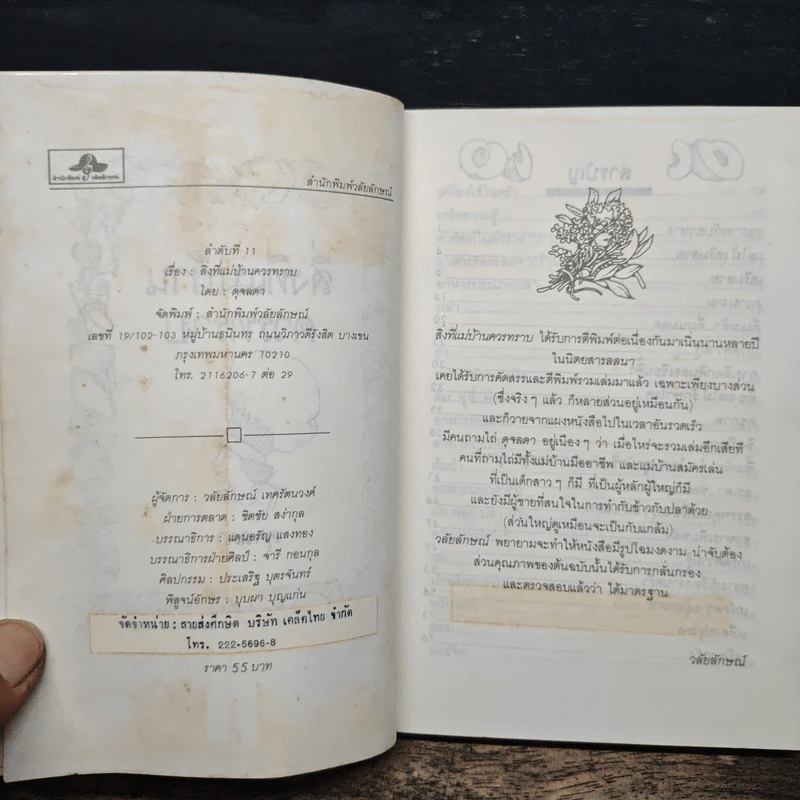 สำนักพิมพ์ วลัยลักษณ์
สำนักพิมพ์วลัยลักษณ์
ลำดับที่ 11
เรื่อง : สิ่งที่แม่บ้านควรทราบ
โดย : ดุจลดา
จัดพิมพ์ : สำนักพิมพ์วลัยลักษณ์
เลขที่ 19/102-103 หมู่บ้านธนินทร ถนนวิภาวดีรังสิต บางเขน
กรุงเทพมหานคร 10210
โทร. 2116206-7 ต่อ 29
ผู้จัดการ : วลัยลักษณ์ เทศรัตนวงศ์
ฝ่ายการตลาด : ชิตชัย สง่ากุล
บรรณาธิการ : แดนอรัญ แสงทอง
บรรณาธิการฝ่ายศิลป์ : จารี กอนกุล
ศิลปกรรม : ประเสริฐ บุตรจันทร์
พิสูจน์อักษร : บุบผา บุญแก่น
จัดจำหน่าย : สายส่งศึกษิต บริษัท เคล็ดไทย จำกัด
โทร. 222-5696-8
ราคา 55 บาท
สารบัญ
สิ่งที่แม่บ้านควรทราบ ได้รับการตีพิมพ์ต่อเนื่องกันมาเนิ่นนานหลายปี
ในนิตยสารลลนา
เคยได้รับการคัดสรรและตีพิมพ์รวมเล่มมาแล้ว เฉพาะเพียงบางส่วน
(ซึ่งจริง ๆ แล้ว ก็หลายส่วนอยู่เหมือนกัน)
และก็วายจากแผงหนังสือไปในเวลาอันรวดเร็ว
มีคนถามไถ่ ดุจลดา อยู่เนือง ๆ ว่า เมื่อไหร่จะรวมเล่มอีกเสียที
คนที่ถามไถ่มีทั้งแม่บ้านมืออาชีพ และแม่บ้านสมัครเล่น
ที่เป็นเด็กสาว ๆ ก็มี ที่เป็นผู้หลักผู้ใหญ่ก็มี
และยังมีผู้ชายที่สนใจในการทำกับข้าวกับปลาด้วย
(ส่วนใหญ่ดูเหมือนจะเป็นกับแกล้ม)
วลัยลักษณ์ พยายามจะทำให้หนังสือมีรูปโฉมงดงาม น่าจับต้อง
ส่วนคุณภาพของต้นฉบับนั้นได้รับการกลั่นกรอง
และตรวจสอบแล้วว่า ได้มาตรฐาน
วลัยลักษณ์